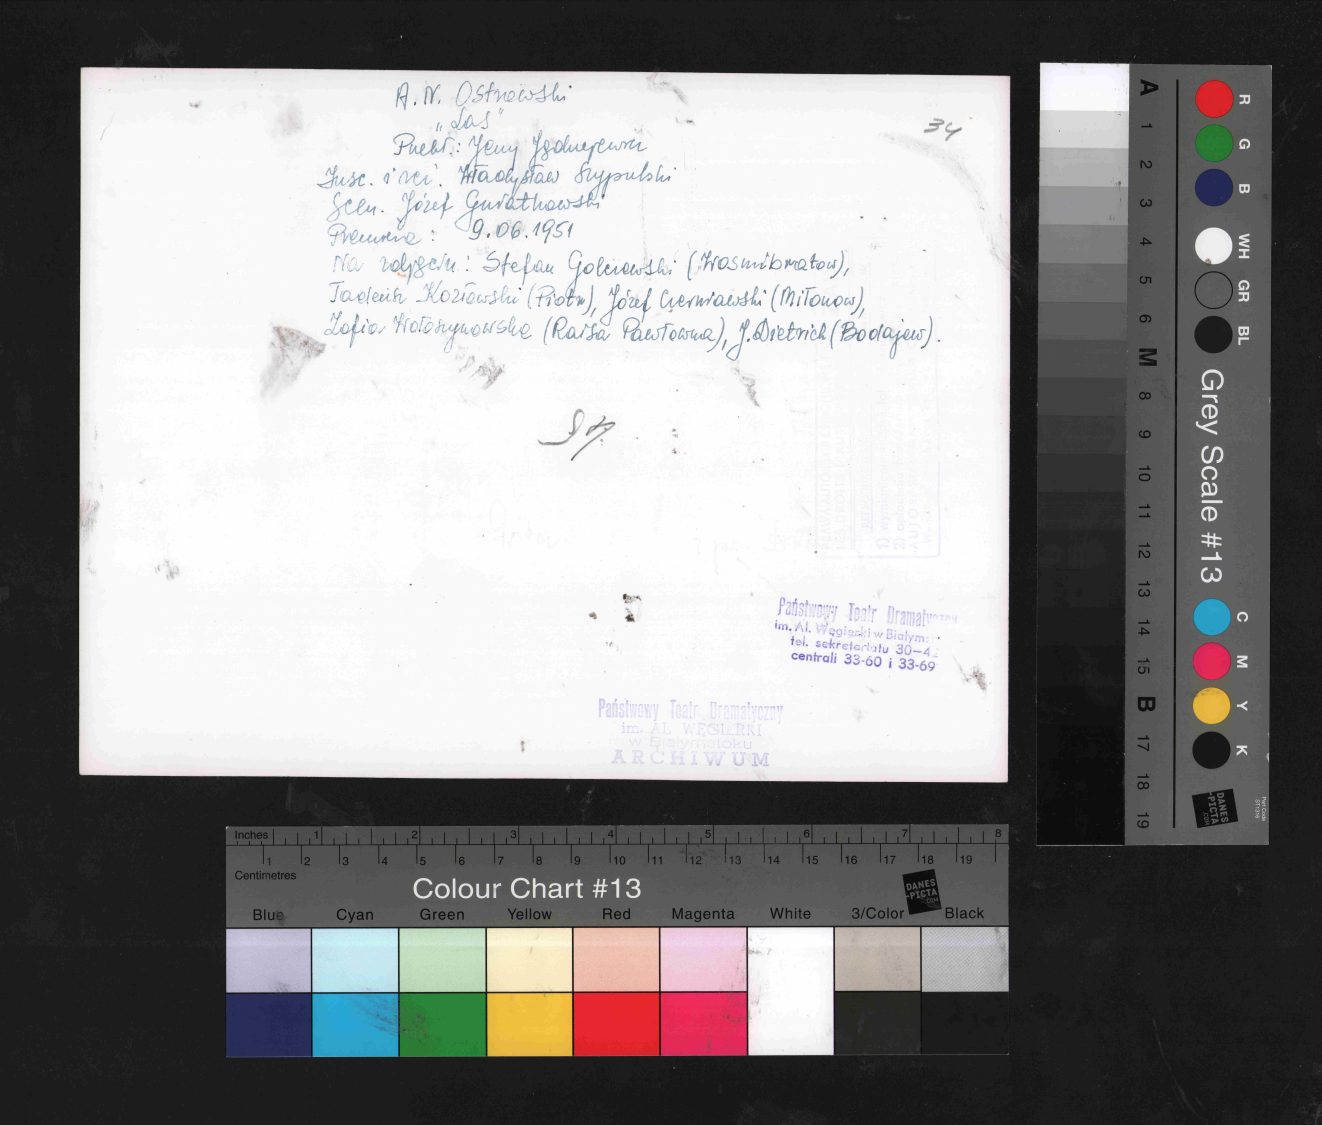 A.N. Ostrowski
„Las”
Przekł.: Jerzy Jędrzejewicz
Insc. i reż. Władysław Szypulski
Scen. Józef Gwiatkowski
Premiera: 9.06.1951
Na zdjęciu: Stefan Golczewski (Wosmibratow),
Tadeusz Kozłowski (Piotr), Józef Czerniawski (Miłonow),
Zofia Wołoszynowska (Raisa Pawłowna), J. Dietrich (Bodajew).
34
Państwowy Teatr Dramatyczny
im. Al. Węgierki w Białym
tel. sekretariatu 30-4
centrali 33-60 i 33-69
Państwowy Teatr Dramatyczny
im. AL. WĘGIERKI
w Białymstoku
ARCHIWUM
Inches 1 2 3 4 5 6 7 8
1 2 3 4 5 6 7 8 9 10 11 12 13 14 15 16 17 18 19
Centimetres
Colour Chart #13
DANES
-PICTA
.COM
Blue Cyan Green Yellow Red Magenta White 3/Color Black
A 1 2 3 4 5 6 M 8 9 10 11 12 13 14 15 B 17 18 19
R G B WH GR BL
Grey Scale #13
C M Y K
DANES
-PICTA
.COM